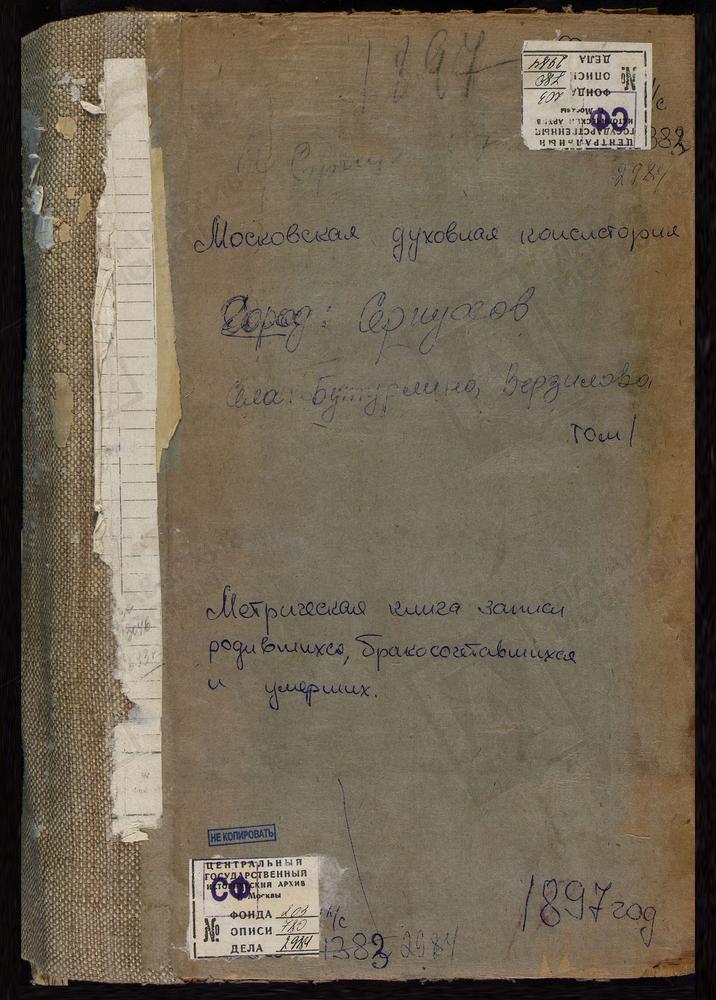 1897
ЦЕНТРАЛЬНЫЙ
ГОСУДАРСТВЕННЫЙ
ИСТОРИЧЕСКИЙ АРХИВ
г. Москвы
СФ
№
ФОНДА 203
ОПИСИ 780
ДЕЛА 2984
2984
Московская духовная консистория
Город: Серпухов
Села: Бутурлино, Верзилово
том 1
Метрическая книга записи
родившихся, бракосочетавшихся
и умерших.
НЕ КОПИРОВАТЬ
ЦЕНТРАЛЬНЫЙ
ГОСУДАРСТВЕННЫЙ
ИСТОРИЧЕСКИЙ АРХИВ
г. Москвы
СФ
№
ФОНДА 203
ОПИСИ 780
ДЕЛА 2984
1382 2984
1897 год